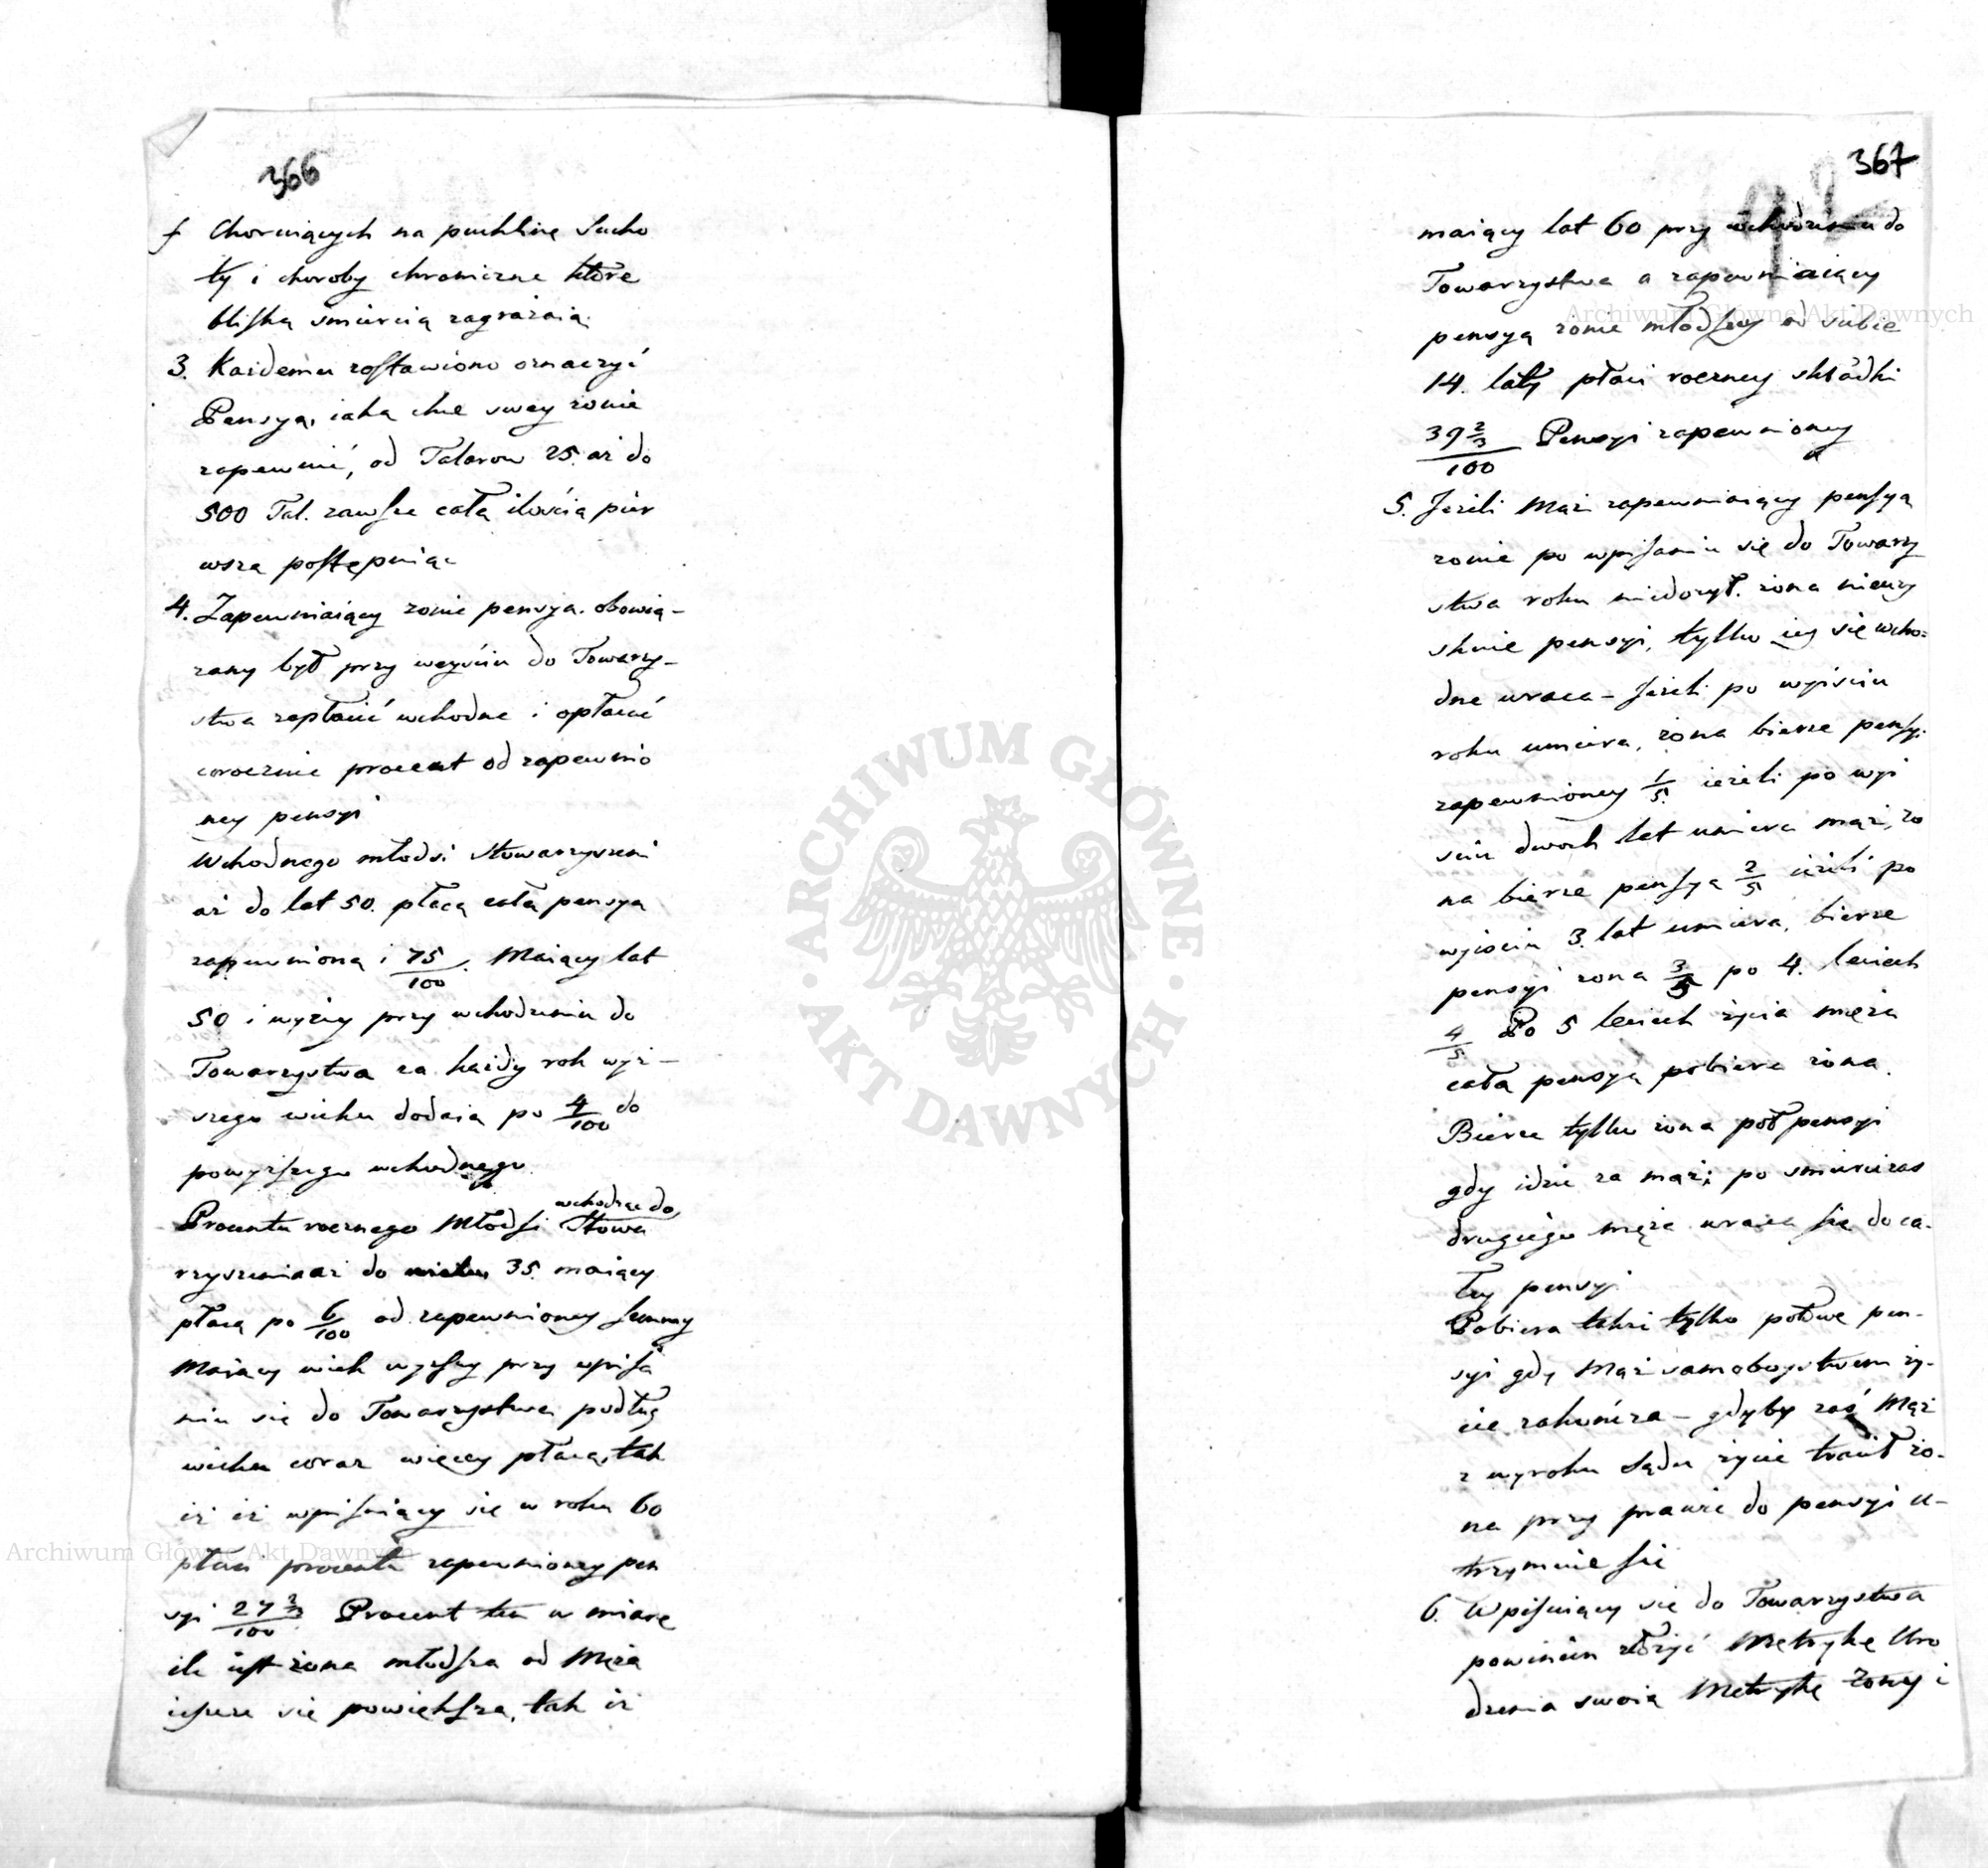 366
f Choruiących na puchlinę Sucho
ty i choroby chroniczne które
bliską śmiercią zagrażaią.
3. Każdemu zostawiono oznaczyć
Pensyą, iaką chce swey żonie
zapewnić, od Talarow 25. aż do
500 Tal. zawsze całą ilością pier
wszą postępuiąc
4. Zapewniaiący żonie pensyą. obowią-
zany był przy weyściu do Towarzy-
stwa zapłacić wchodne i opłacać
corocznie procent od zapewnio
ney pensyi
Wchodnego młodsi Stowarzyszeni
aż do lat 50. płacą całą pensyą
zapewnioną i 75/100. Maiący lat
50 i wyżey przy wchodzeniu do
Towarzystwa za każdy rok wyż-
szego wieku dodaią po 4/100 do
powyższego wchodnego.
wchodząc do
Procentu rocznego Młodsi Stowa
rzyszeni aż do wieku 35. maiący
płacą po 6/100 od zapewnioney summy
Maiący wiek wyższy przy wpisa
niu się do Towarzystwa podług
wieku coraz więcey płacą, tak
iż iż wpisuiący się w roku 60
płaci procentu zapewnioney pen
syi 27 2/3/100. Procent ten w miarę
ile iest żona młodsza od Męża
ieszcze się powiększa, tak iż
367
maiący lat 60 przy wchodzeniu do
Towarzystwa a zapewniaiący
pensyą żonie młodszey od siebie
14. laty płaci roczney składki
39 2/3/100 Pensyi zapewnioney
5. Jeżeli Mąż zapewniaiący pensyą
żonie po wpisaniu się do Towarzy
stwa roku niedożył. żona nieuzy
skuie pensyi, tylko iey się wcho=
dne wraca - Jeżeli po wyiściu
roku umiera, żona bierze pensyi
zapewnioney 1/5. ieżeli po wyi
ściu dwoch lat umiera mąż, żo
na bierze pensyą 2/5 ieżeli po
wyiściu 3. lat umiera, bierze
pensyi żona 3/5 po 4. leciech
4/5 Po 5 leciech życia męża
całą pensyą pobiera żona.
Bierze tylko żona poł pensyi
gdy idzie za mąż; po śmierci zas
drugiego męża wraca się do ca-
łey pensyi
Pobiera także tylko połowę pen-
syi gdy Mąż samoboystwem ży-
cie zakończa - gdyby zaś Mąż
z wyroku Sądu życie tracił żo-
na przy prawie do pensyi u-
trzymuie się
6. Wpisuiący się do Towarzystwa
powinien złożyć Metrykę Uro
dzenia swoią Metrykę Żony i
Archiwum Główne Akt Dawnych
Archiwum Główne Akt Dawnych
ARCHIWUM GŁÓWNE · AKT DAWNYCH ·